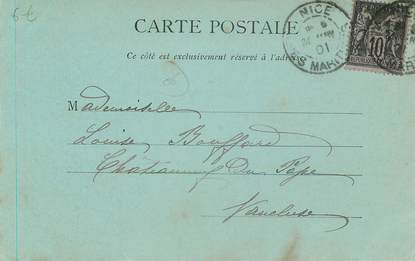 6€
CARTE POSTALE
NICE
01
MARIT
10
Ce côté est exclusivement réservé à l'adresse
Mademoiselle
Louise Bouffard
Châteauneuf Du Pape
Vaucluse